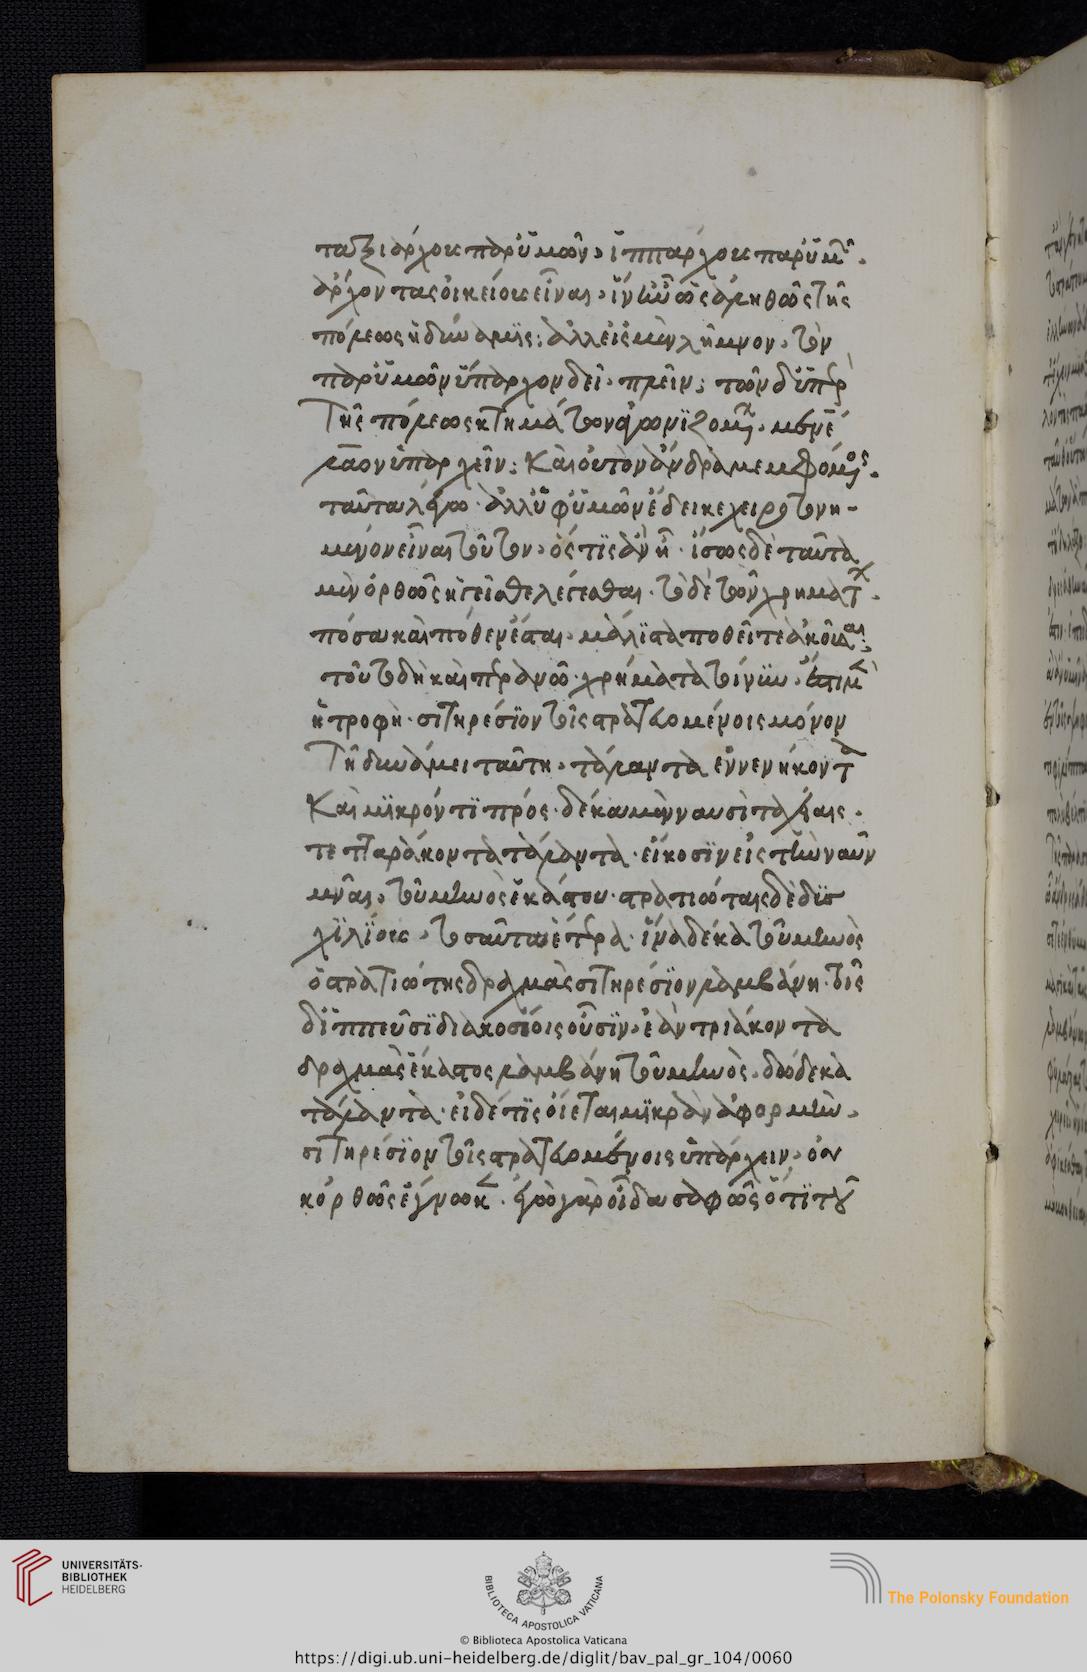 ταξιάρχους παρ' ὑμῶν, ἱππάρχους παρ' ὑμῶν.
ἄρχοντας οἰκείους εἶναι, ἵν' ἦν ὡς ἀληθῶς τῆς
πόλεως ἡ δύναμις; ἀλλ' εἰς μὲν λῆμνον, τὸν
παρ' ὑμῶν ἵππαρχον δεῖ πλεῖν; τῶν δ' ὑπὲρ
τῆς πόλεως κτημάτων ἀγωνιζομένων, μενέ
λαον ἱππαρχεῖν; καὶ οὐ τὸν ἄνδρα μεμφόμενος
ταῦτα λέγω. ἀλλ' ὑφ' ὑμῶν ἔδει κεχειροτονη-
μένον εἶναι τοῦτον, ὅστις ἂν ᾖ. ἴσως δὲ ταῦτα
μὲν ὀρθῶς ἡγεῖσθε λέγεσθαι. τὸ δὲ τῶν χρημάτων.
πόσα καὶ πόθεν ἔσται, μάλιστα ποθεῖτε ἀκοῦσαι;
τοῦτο δὴ καὶ περαίνω. χρήματα τοίνυν, ἔστι μὲν
ἡ τροφὴ, σιτηρέσιον τοῖς στρατευομένοις μόνον
τῇ δυνάμει ταύτῃ, τάλαντα ἐννενήκοντα
καὶ μικρόν τι πρός. δέκα μὲν ναυσὶ ταχείαις.
τετταράκοντα τάλαντα. εἴκοσιν εἰς τὴν ναῦν
μναῖ, τοῦ μηνὸς ἑκάστου. στρατιώταις δὲ δὶς
χιλίοις, τοσαῦτα ἕτερα. ἵνα δέκα τοῦ μηνὸς
ὁ στρατιώτης δραχμὰς σιτηρέσιον λαμβάνῃ. τοῖς
δ' ἱππεῦσι διακοσίοις οὖσιν, ἐὰν τριάκοντα
δραχμὰς ἕκαστος λαμβάνῃ τοῦ μηνὸς, δώδεκα
τάλαντα. εἰ δέ τις οἴεται μικρὰν ἀφορμὴν,
σιτηρέσιον τοῖς στρατευομένοις ὑπάρχειν, οὐ
κ ὀρθῶς ἔγνωκεν. ἐγὼ γὰρ οἶδα σαφῶς ὅτι τοῦ
UNIVERSITÄTS-
BIBLIOTHEK
HEIDELBERG
BIBLIOTECA APOSTOLICA VATICANA
The Polonsky Foundation
© Biblioteca Apostolica Vaticana
https://digi.ub.uni-heidelberg.de/diglit/bav_pal_gr_104/0060